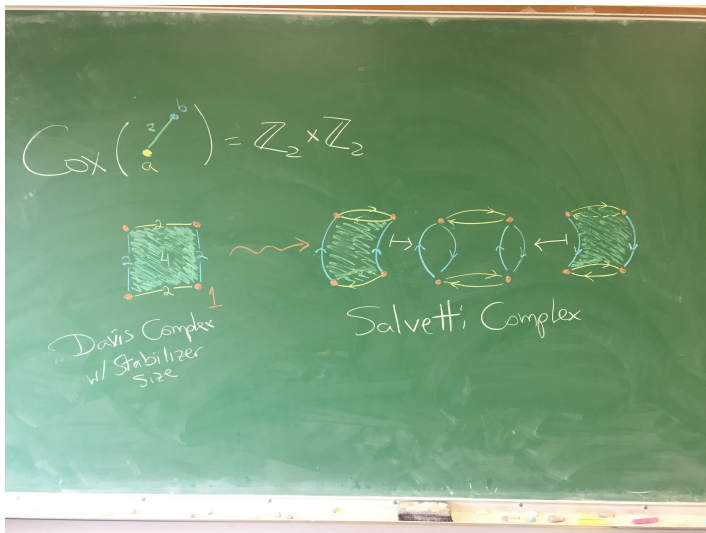 Cox( a 2 b ) = ℤ₂ × ℤ₂
2
2 4 2
2 1
Davis Complex
w/ Stabilizer
Size
Salvetti Complex